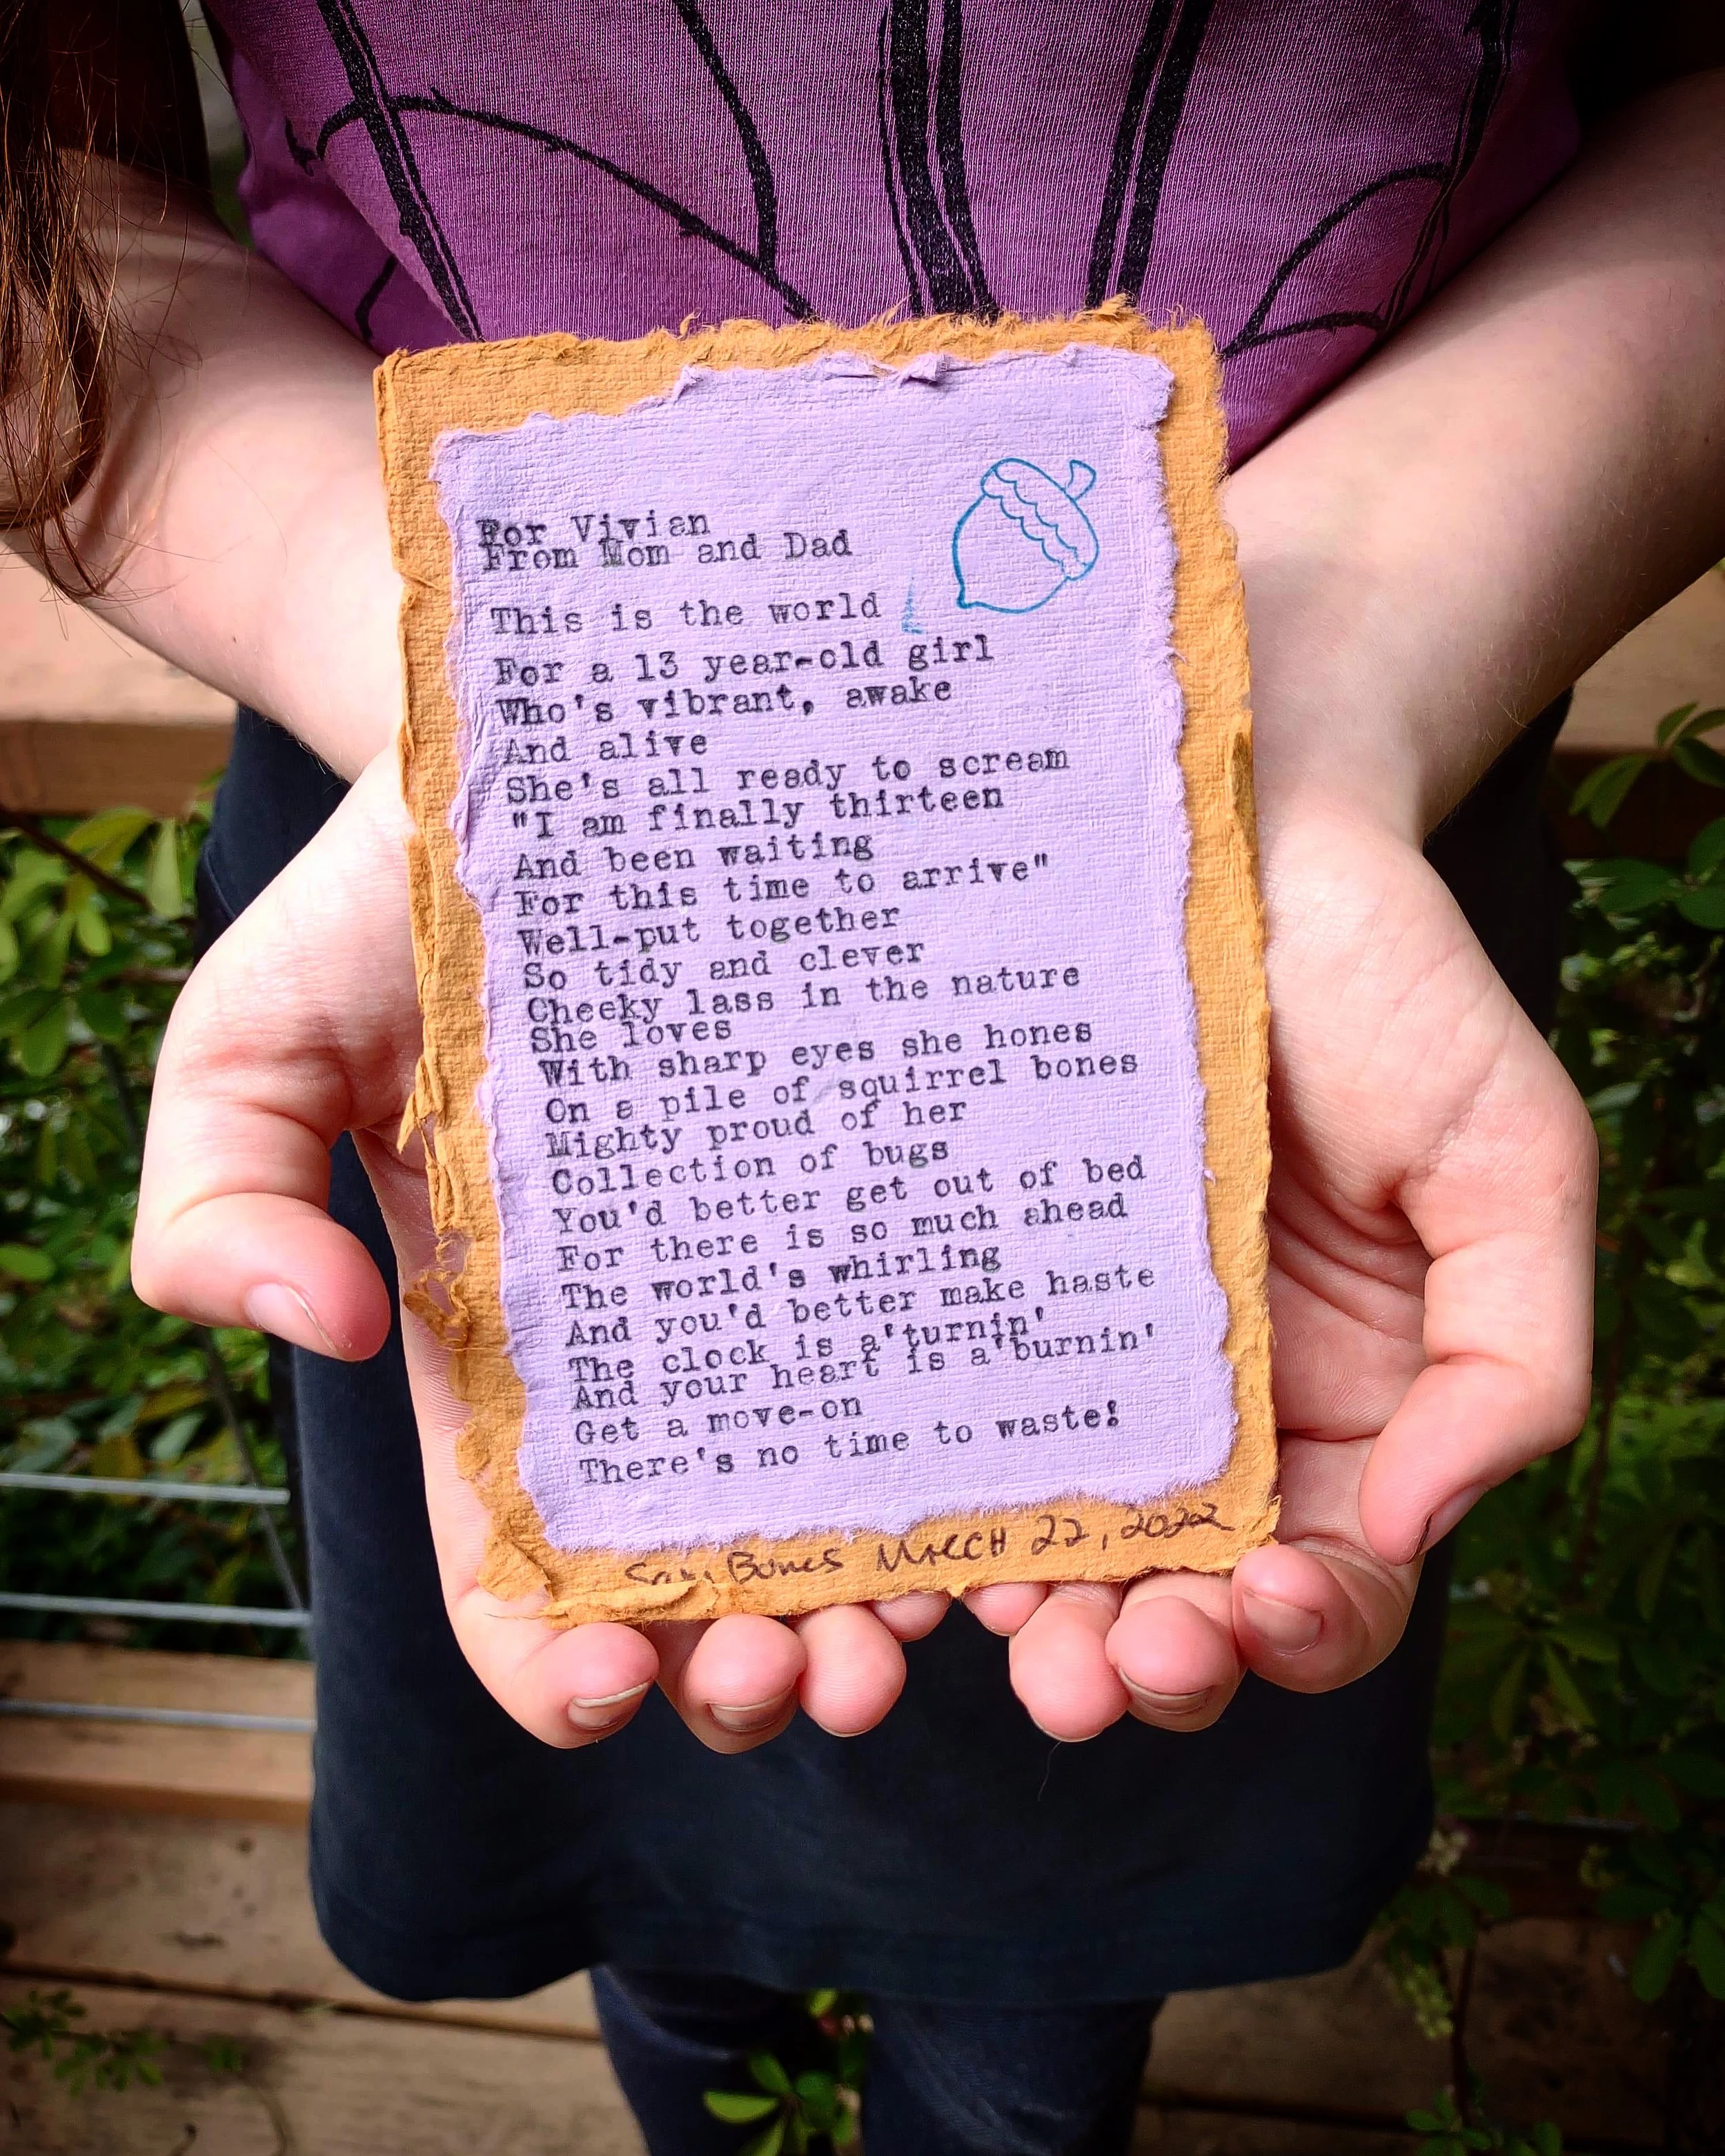 For Vivian
From Mom and Dad
This is the world
For a 13 year-old girl
Who's vibrant, awake
And alive
She's all ready to scream
"I am finally thirteen
And been waiting
For this time to arrive"
Well-put together
So tidy and clever
Cheeky lass in the nature
She loves
With sharp eyes she hones
On a pile of squirrel bones
Mighty proud of her
Collection of bugs
You'd better get out of bed
For there is so much ahead
The world's whirling
And you'd better make haste
The clock is a'turnin'
And your heart is a'burnin'
Get a move-on
There's no time to waste!
Bones March 22, 2022